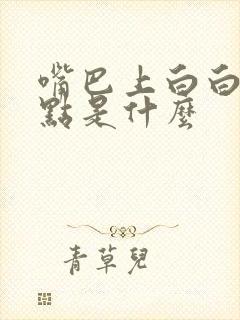 嘴巴上白白
點是什麼
青草兒